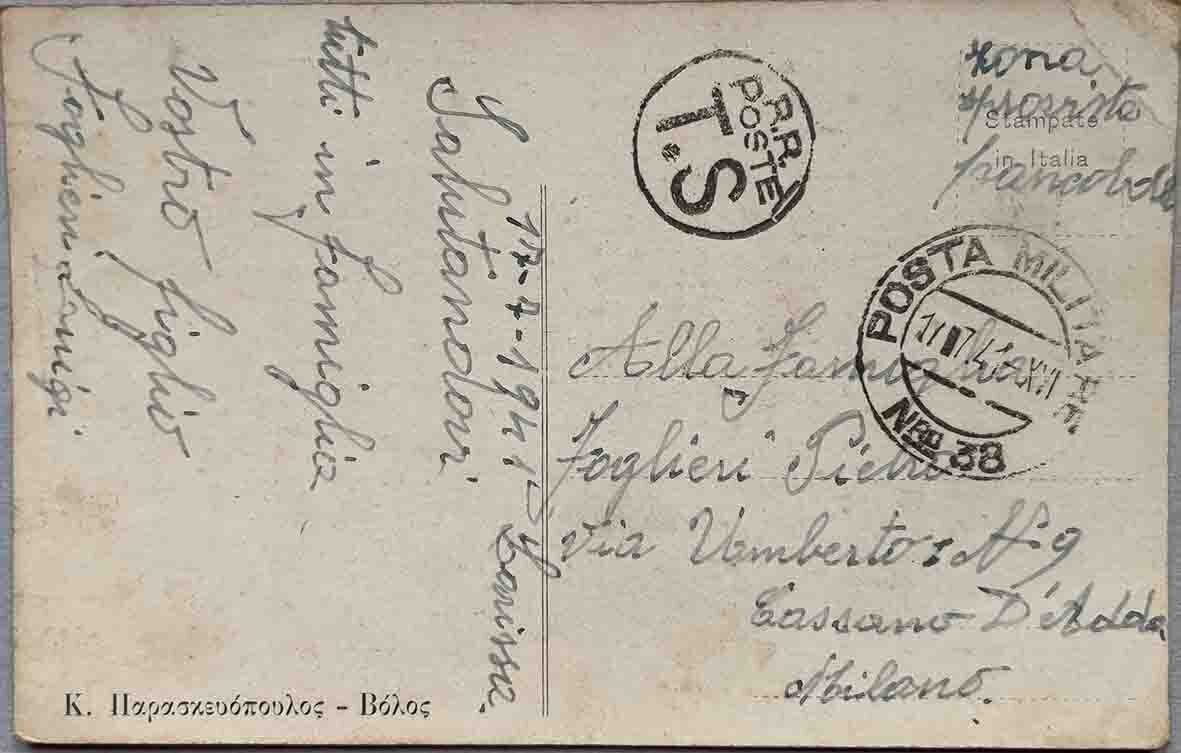 17-7-1941 Larissa.
Salutandovi
tutti in famiglia
Vostro figlio
Foglieni Luigi
Κ. Παρασκευόπουλος - Βόλος
R.R.
POSTE
T.S
zona
sprovista
francobolli
Stampate
in Italia
POSTA MILITARE
17.7.41 XVI
Nro 38
Alla Famiglia
Foglieni Pietro
Via Umberto: N-9
Cassano D'Adda
Milano.